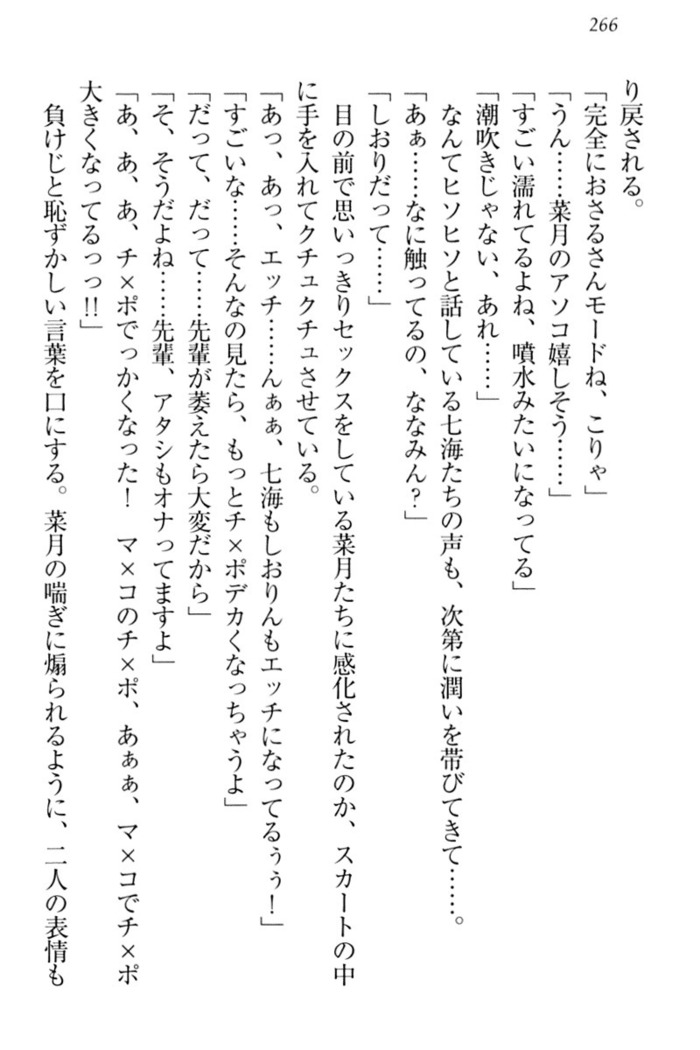 266
り戻される。
「完全におさるさんモードね、こりゃ」
「うん……菜月のアソコ嬉しそう……」
「すごい濡れてるよね、噴水みたいになってる」
「潮吹きじゃない、あれ……」
なんてヒソヒソと話している七海たちの声も、次第に潤いを帯びてきて……。
「あぁ……なに触ってるの、ななみん?」
「しおりだって……」
目の前で思いっきりセックスをしている菜月たちに感化されたのか、スカートの中
に手を入れてクチュクチュさせている。
「あっ、あっ、エッチ……んぁぁ、七海もしおりんもエッチになってるぅぅ!」
「すごいな……そんなの見たら、もっとチ×ポデカくなっちゃうよ」
「だって、だって……先輩が萎えたら大変だから」
「そ、そうだよね……先輩、アタシもオナってますよ」
「あ、あ、あ、チ×ポでっかくなった! マ×コのチ×ポ、あぁぁ、マ×コでチ×ポ
大きくなってるっっ!!」
負けじと恥ずかしい言葉を口にする。菜月の喘ぎに煽られるように、二人の表情も